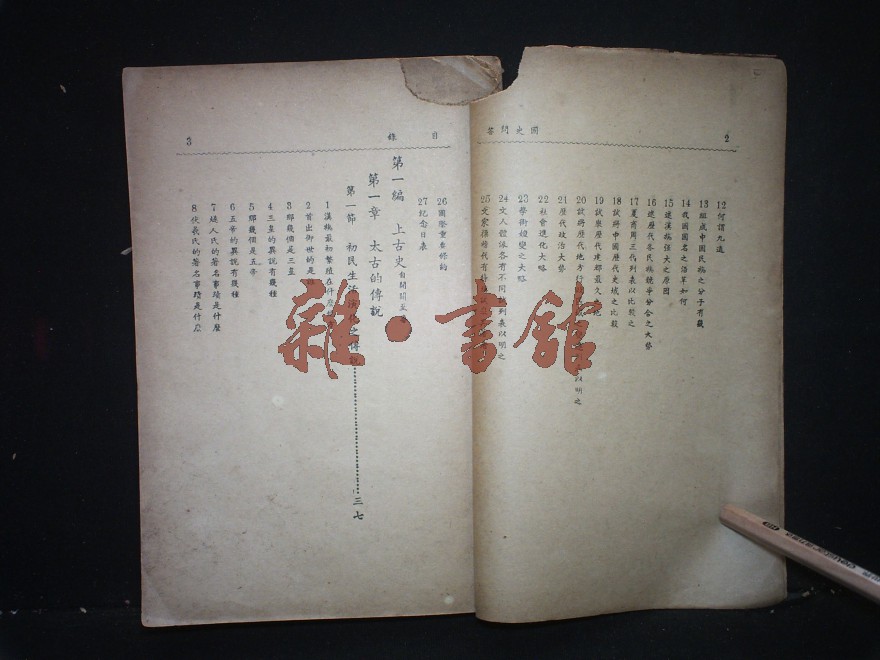 國史問答
2
12 何謂九邊
13 組成中國民族之分子有幾
14 我國國名之沿革如何
15 述漢族強大之原因
16 述歷代各民族競爭分合之大勢
17 夏商周三代列表以比較之
18 試將中國歷代疆域之比較
19 試度歷代建都最久之地
20 試將歷代地方行 以明之
21 歷代政治大勢
22 社會進化大略
23 學術嬗變之大略
24 文人體派各有不同試列表以明之
25 文家 代有
26 國際重要條約
27 紀念日表
目錄
3
第一編 上古史 自開闢至
第一章 太古的傳說
第一節 初民生活演化之傳說 三七
1 漢族最初繁殖在什麼
2 首出御世的是
3 那幾個是三皇
4 三皇的異說有幾種
5 那幾個是五帝
6 五帝的異說有幾種
7 燧人氏的著名事蹟是什麼
8 伏羲氏的著名事蹟是什麼
雜·書館